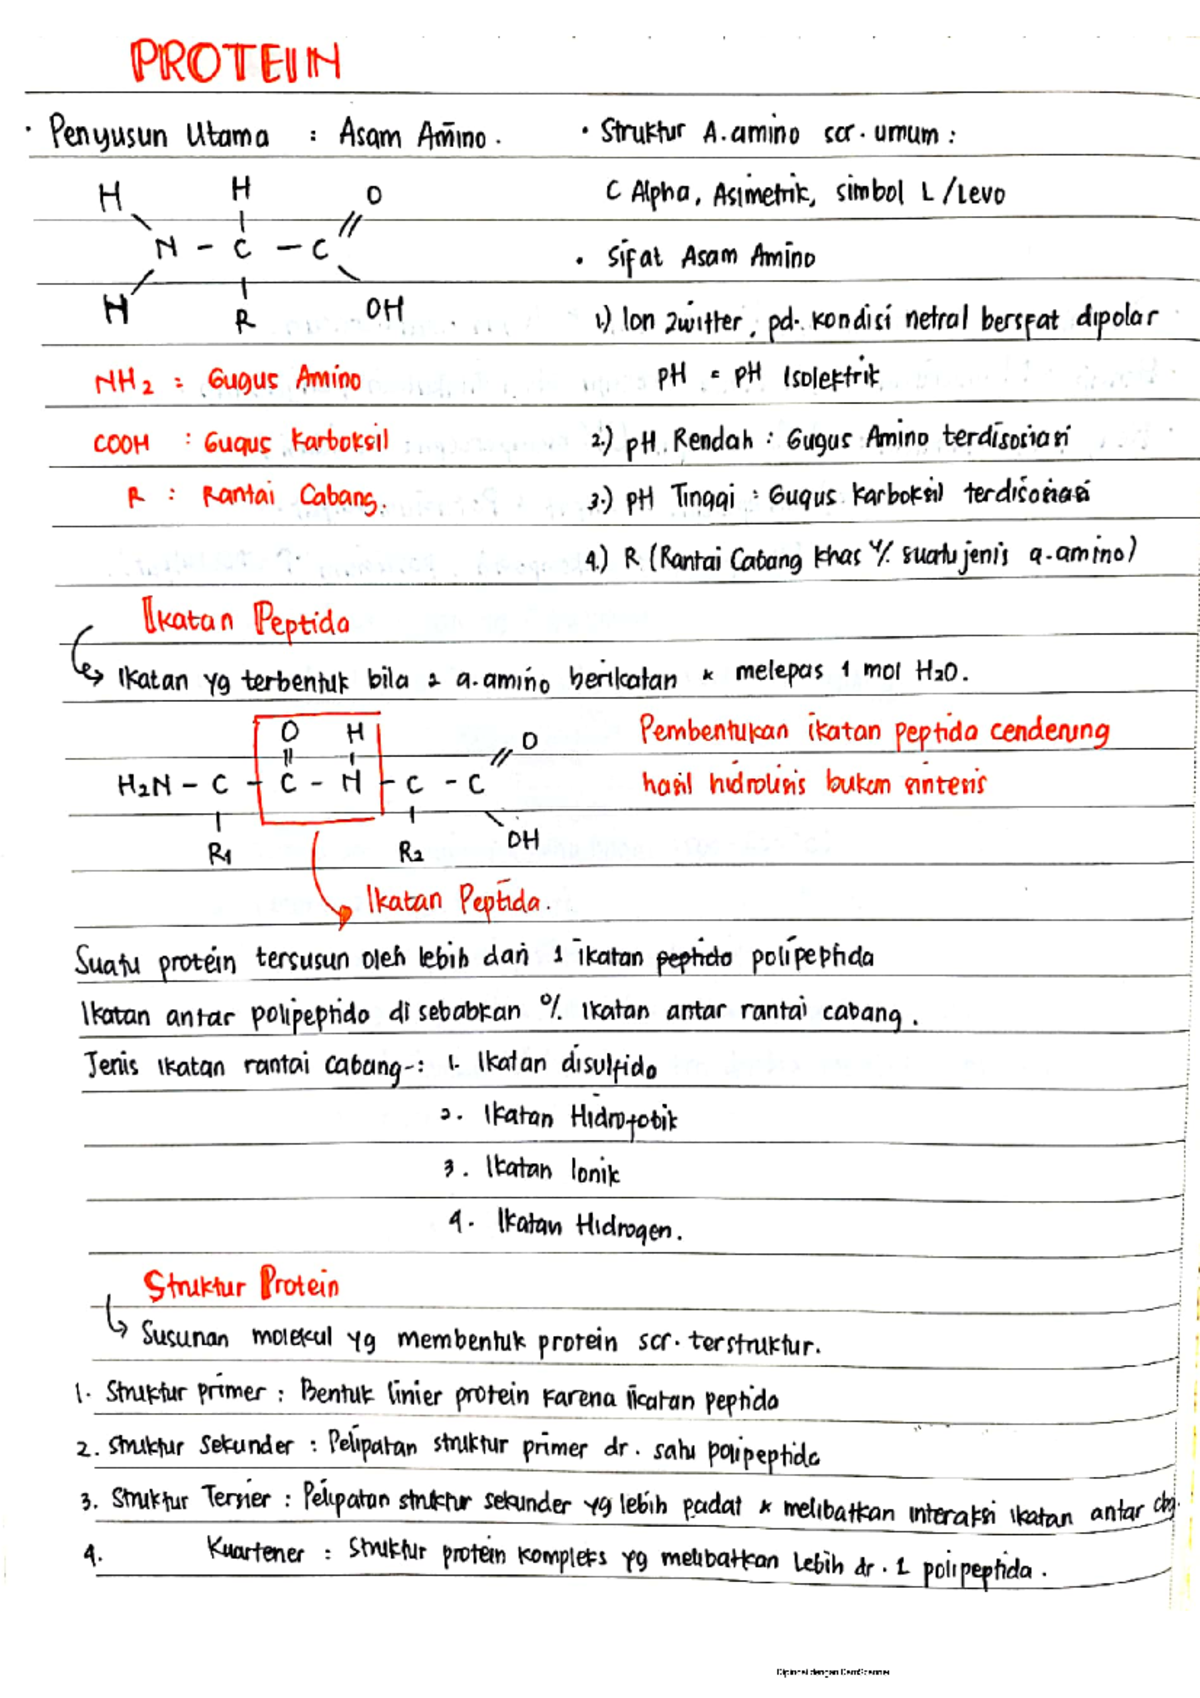 PROTEIN
· Penyusun Utama : Asam Amino.
H H O
N - C - C
H R OH
NH2 : Gugus Amino
COOH : Gugus Karboksil
R : Rantai Cabang.
· Struktur A.amino scr. umum :
C Alpha, Asimetrik, simbol L/Levo
· Sifat Asam Amino
1.) Ion Zwitter, pd. kondisi netral bersfat dipolar
pH = pH Isolektrik
2.) pH Rendah : Gugus Amino terdisosiasi
3.) pH Tinggi : Gugus Karboksil terdisosiasi
4.) R (Rantai Cabang khas % suatu jenis a.amino)
Ikatan Peptida
Ikatan yg terbentuk bila 2 a.amino berikatan * melepas 1 mol H2O.
O H O
H2N - C - C - N - C - C
R1 R2 OH
Ikatan Peptida.
Pembentukan ikatan peptida cenderung
hasil hidrolisis bukan sintesis
Suatu protein tersusun oleh lebih dari 1 ikatan peptida polipeptida
Ikatan antar polipeptida disebabkan % Ikatan antar rantai cabang.
Jenis Ikatan rantai cabang-: 1. Ikatan disulfida
2. Ikatan Hidrofobik
3. Ikatan Ionik
4. Ikatan Hidrogen.
Struktur Protein
Susunan molekul yg membentuk protein scr. terstruktur.
1. Struktur primer : Bentuk linier protein karena ikatan peptida
2. Struktur Sekunder : Pelipatan struktur primer dr. satu polipeptida
3. Struktur Tersier : Pelipatan struktur sekunder yg lebih padat * melibatkan interaksi ikatan antar cbg.
4. Kuartener : Struktur protein kompleks yg melibatkan lebih dr. 1 polipeptida.
Dipindai dengan CamScanner